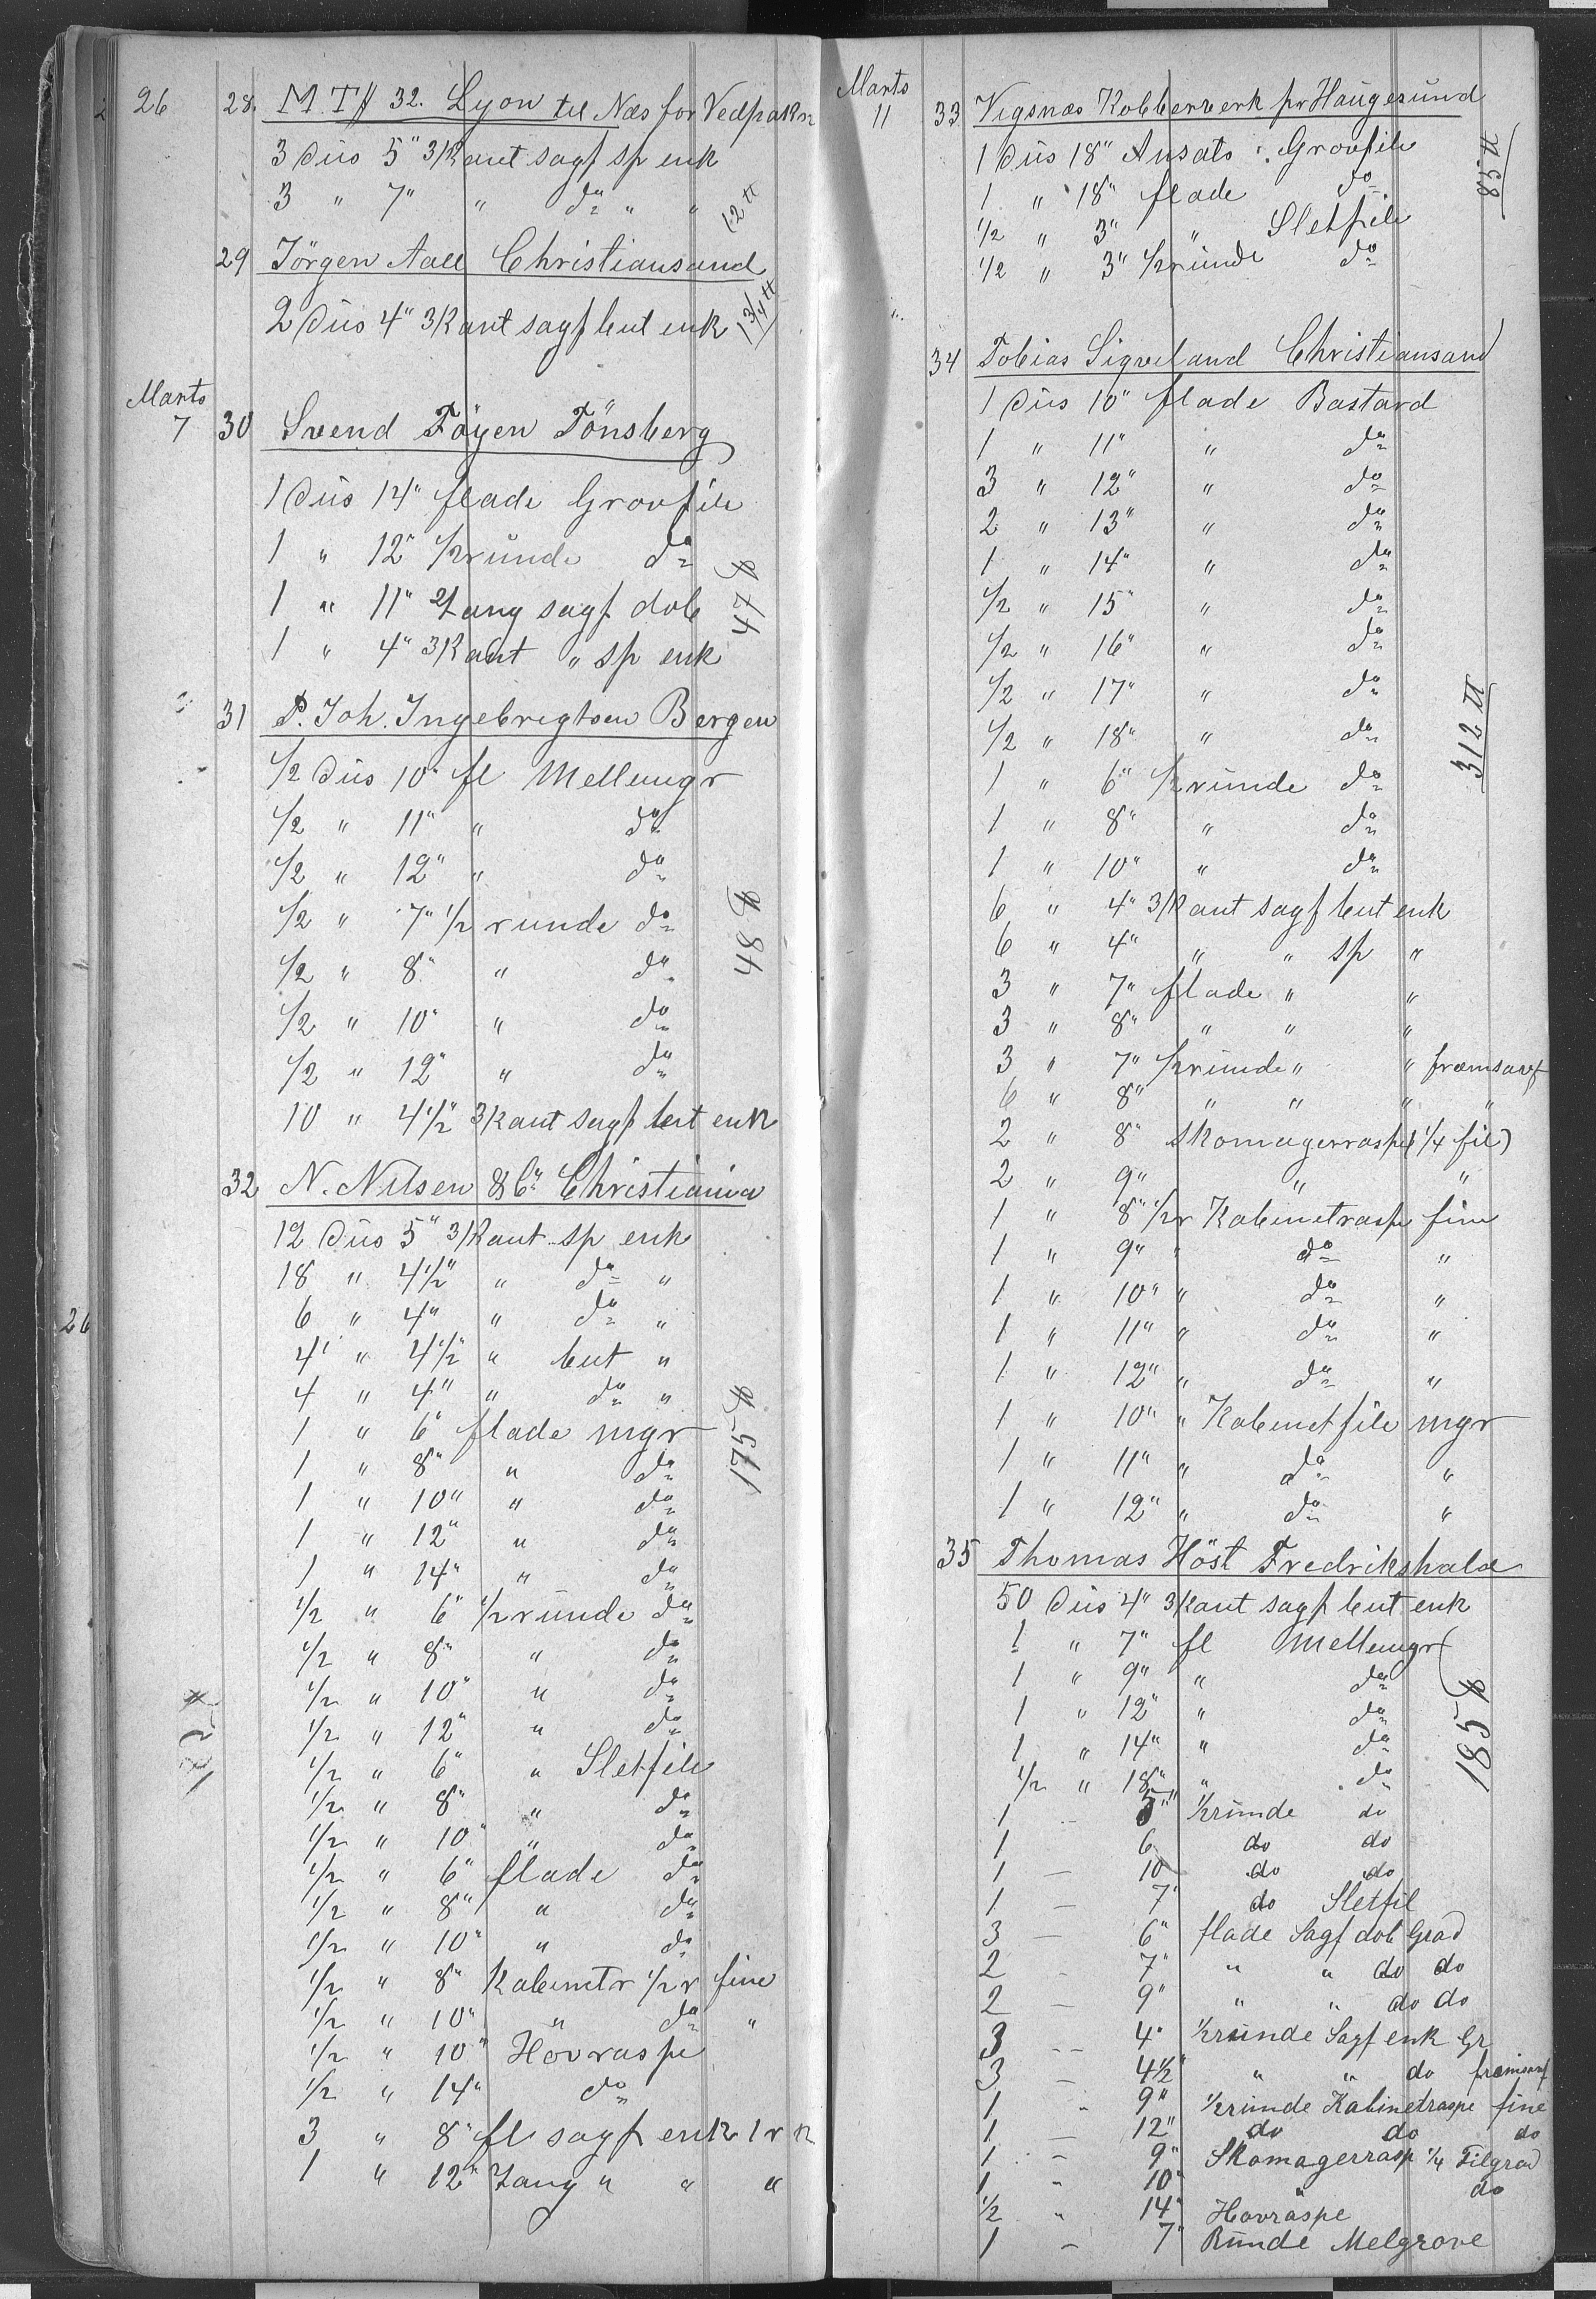 26 28. M.T. 32. Lyon til Næs for Vedpakn
3 Düs 5" 3/Kant sagf sp enk
3 " 7" " do " "
12 ℔
29 Jörgen Aall Christiansand
2 Düs 4" 3/Kant sagf but enk
1 3/4 ℔
Marts
7 30 Svend Föyen Tönsberg
1 Düs 14" flade Grovfile
1 " 12" 1/2 runde do
1 " 11" Lang sagf dob
1 " 4" 3/Kant " sp enk
47 ℔
31 P. Joh. Ingebrigtsen Bergen
1/2 Düs 10" fl Mellemgr
1/2 " 11" " do
1/2 " 12" " do
1/2 " 7" 1/2 runde do
1/2 " 8" " do
1/2 " 10" " do
1/2 " 12" " do
10 " 4 1/2" 3/Kant sagf but enk
48 ℔
32 N. Nilsen & Co Christiania
12 Düs 5" 3/Kant sp enk
18 " 4 1/2" " do "
6 " 4" " do "
4 " 4 1/2" " but "
4 " 4" " do "
1 " 6" flade mgr
1 " 8" " do
1 " 10" " do
1 " 12" " do
1 " 14" " do
1/2 " 6" 1/2 runde do
1/2 " 8" " do
1/2 " 10" " do
1/2 " 12" " do
1/2 " 6" " Sletfile
1/2 " 8" " do
1/2 " 10" " do
1/2 " 6" flade do
1/2 " 8" " do
1/2 " 10" " do
1/2 " 8" Kabinetr 1/2 r fine
1/2 " 10" " do "
1/2 " 10" Hovraspe
1/2 " 14" do
3 " 8" fl sagf enk 1 r k
1 " 12" Lang " " "
175 ℔
26
Marts
11 33 Vigsnæs Kobberverk pr Haugesund
1 Düs 18" Ansats Grovfile
1 " 18" flade do
1/2 " 3" " Sletfile
1/2 " 3" 1/2 runde do
58 ℔
34 Tobias Sigveland Christiansand
1 Düs 10" flade Bastard
1 " 11" " do
3 " 12" " do
2 " 13" " do
1 " 14" " do
1/2 " 15" " do
1/2 " 16" " do
1/2 " 17" " do
1/2 " 18" " do
1 " 6" 1/2 runde do
1 " 8" " do
1 " 10" " do
6 " 4" 3/Kant sagf but enk
6 " 4" " " sp "
3 " 7" flade " "
3 " 8" " " "
3 " 7" 1/2 runde " "
6 " 8" " " " "
2 " 8" Skomagerraspe (1/4 fil)
2 " 9" " "
1 " 8" 1/2 r Kabinetraspe fine
1 " 9" " do "
1 " 10" " do "
1 " 11" " do "
1 " 12" " do "
1 " 10" " Kabinetfile mgr
1 " 11" " do "
1 " 12" " do "
312 ℔
35 Thomas Höst Fredrikshald
50 Düs 4" 3/Kant sagf but enk
1 " 7" fl Mellemgr
1 " 9" " do
1 " 12" " do
1 " 14" " do
1/2 " 18" " do
1 - 5" 1/2 runde do
1 6 do do
1 - 10 do do
1 - 7" do Sletfil
3 - 6" flade Sagf dob Grad
2 - 7" " " do do
2 - 9" " " do do
3 - 4" 1/2 runde Sagf enk Gr
3 - 4 1/2" " " do
1 - 9" 1/2 runde Kabinetraspe fine
1 - 12" do do do
1 - 9" Skomagerrasp 1/4 Filgrad
1 - 10" " do
1/2 " 14" Hovraspe
1 - 7" Runde Melgrove
185 ℔